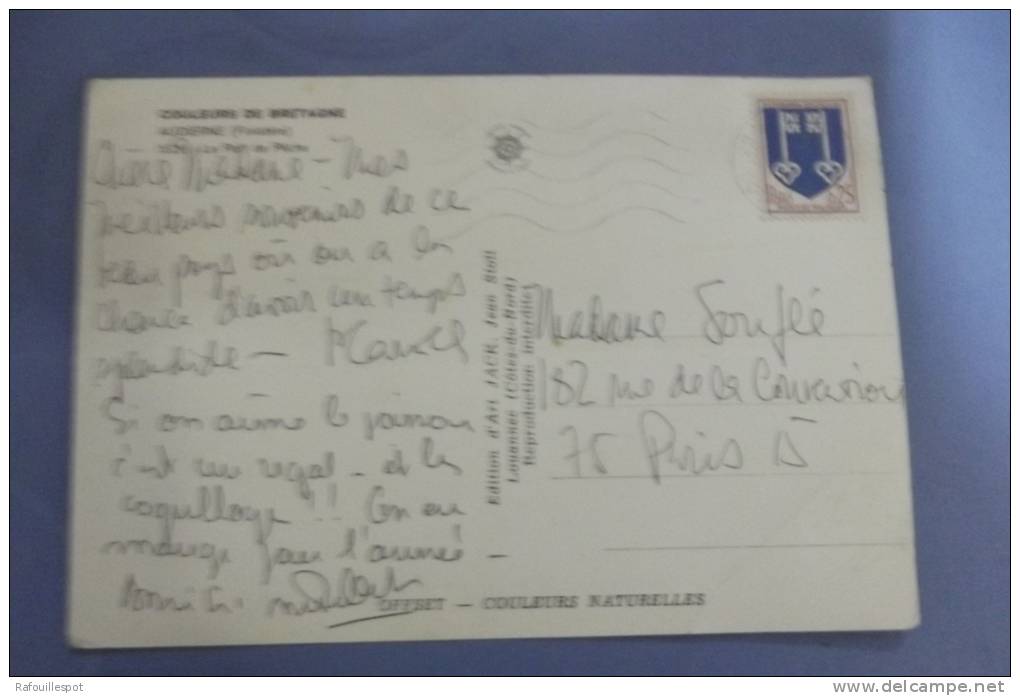 COULEURS DE BRETAGNE
AUDIERNE (Finistère)
Chère Madame - Mes
meilleurs souvenirs de ce
beau pays où on a la
chance d'avoir un temps
splendide -
Si on aime le poisson
c'est un régal - et les
coquillages !! On en
mange pour l'année -
Edition d'Art JACK, Jean
Louannec (Côtes-du-Nord)
Reproduction interdite
Madame Souflé
182 rue de la Convention
75 Paris 15
OFFSET - COULEURS NATURELLES
Rafouillespot
www.delcampe.net